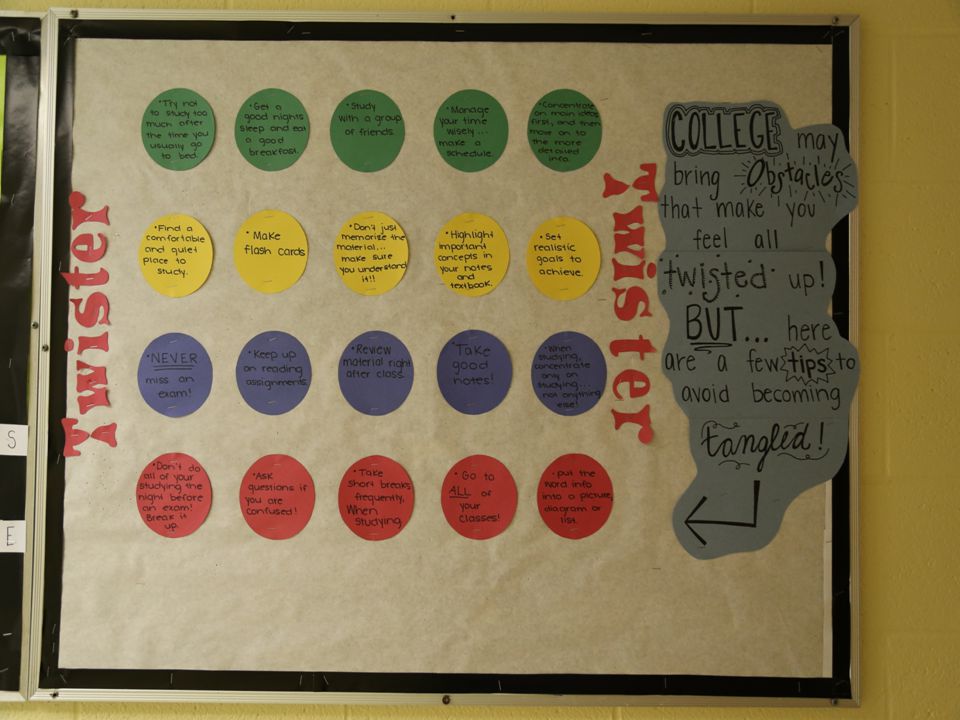 • Try not
to study too
much after
the time you
usually go
to bed.
• Get a
good nights
sleep and eat
a good
breakfast.
• Study
with a group
of friends.
• Manage
your time
wisely...
make a
schedule.
• Concentrate
on main ideas
first, and then
move on to
the more
detailed
info.
• Find a
comfortable
and quiet
place to
study.
• Make
flash cards
• Don't just
memorize the
material...
make sure
you understand
it!!
• Highlight
important
concepts in
your notes
and
textbook.
• Set
realistic
goals to
achieve.
• NEVER
miss an
exam!
• Keep up
on reading
assignments.
• Review
material right
after class.
• Take
good
notes!
• When
studying,
concentrate
only on
studying...
not anything
else!
• Don't do
all of your
studying the
night before
an exam!
Break it
up.
• Ask
questions if
you are
confused!
• Take
short breaks
frequently,
When
studying.
• Go to
ALL of
your
classes!
• put the
word info
into a picture,
diagram or
list.
Twister
Twister
COLLEGE may
bring Obstacles
that make you
feel all
twisted up!
BUT... here
are a few tips to
avoid becoming
tangled!
S
E